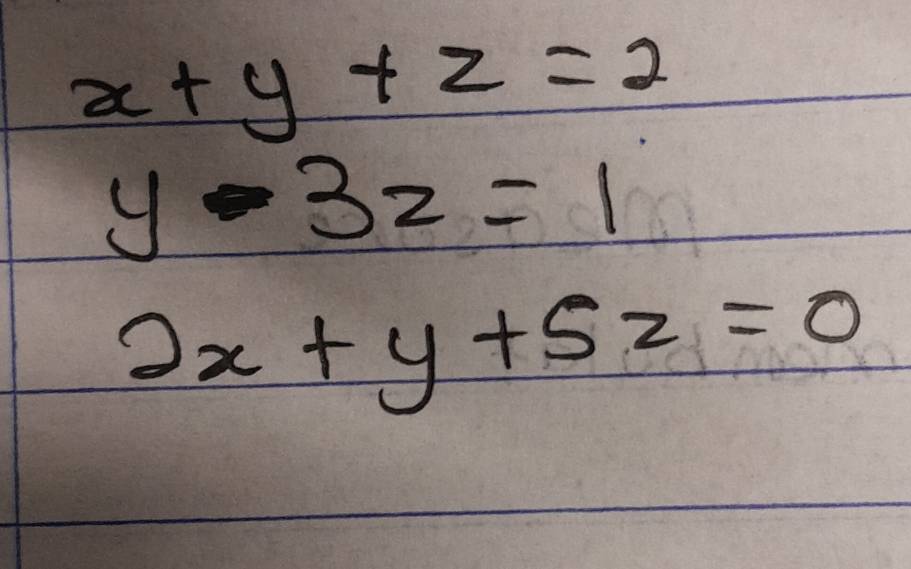 x + y + z = 2
y - 3z = 1
2x + y + 5z = 0